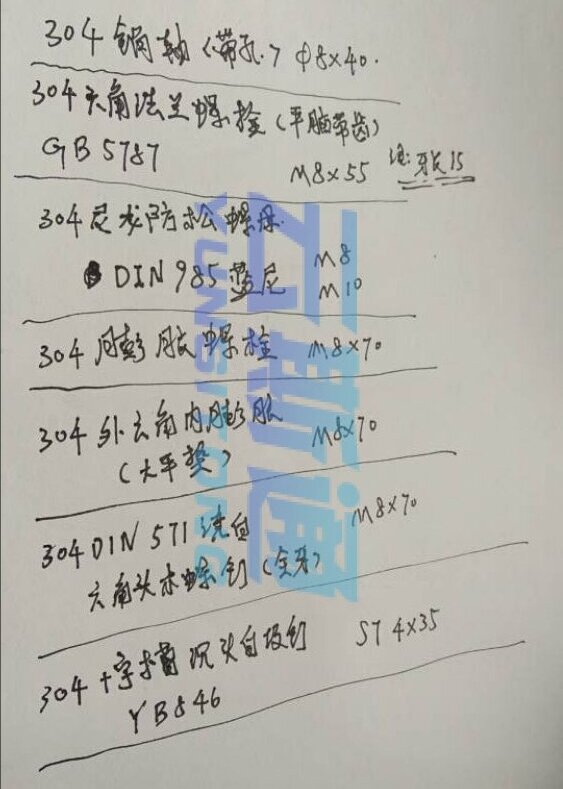 304 销轴（带孔）φ8×40.
304 六角法兰螺栓（平脑带齿）
GB 5787 M8×55 注:牙长15
304 尼龙防松螺母
DIN 985 蓝尼 M8
M10
304 膨胀螺栓 M8×70
304 外六角内膨胀 M8×70
（大平垫）
304 DIN 571 洗白 M8×70
六角头木螺钉（全牙）
304 十字槽沉头自攻钉 ST 4×35
YB846
云斯通
YUNSITONG